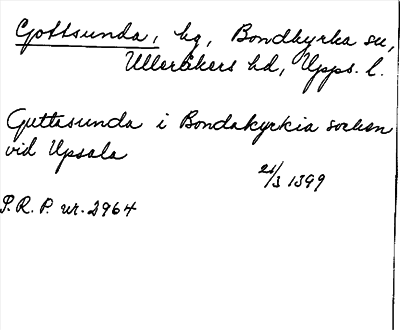 Gottsunda, by, Bondkyrka sn,
Ulleråkers hd, Upps. l.
Guttasunda i Bondakyrkia sochen
vid Upsala
21/3 1399
P.R.P. nr. 2964